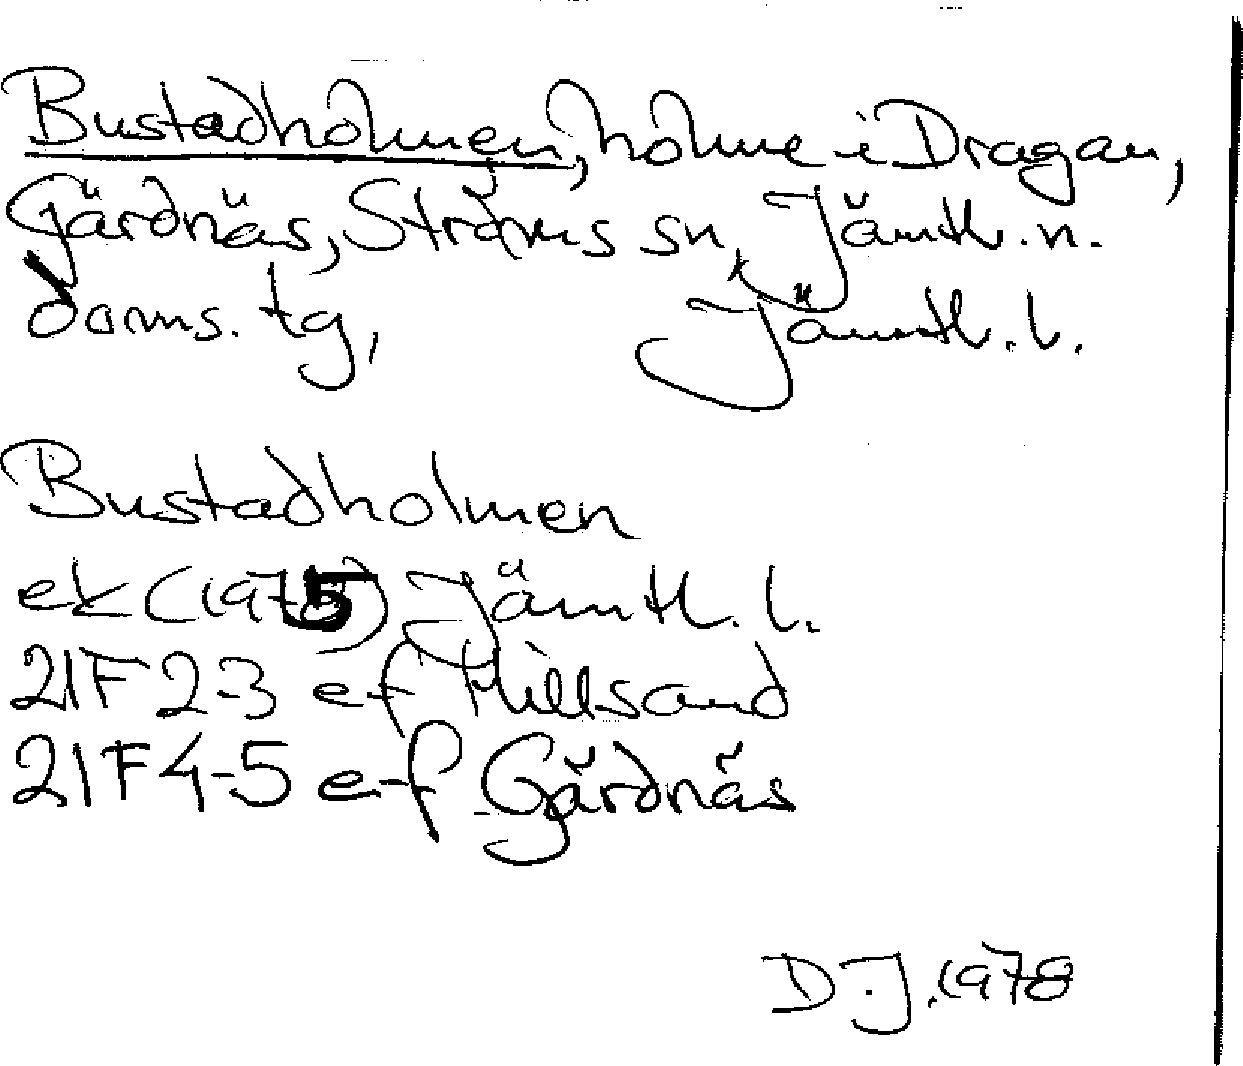 Bustadholmen, holme i Dragan,
Gärdnäs, Ströms sn, Jämtl. n.
doms. tg, Jämtl. l.
Bustadholmen
ek (1975) Jämtl. l.
21F 2-3 e-f Hillsand
21F 4-5 e-f Gärdnäs
D.J. 1978